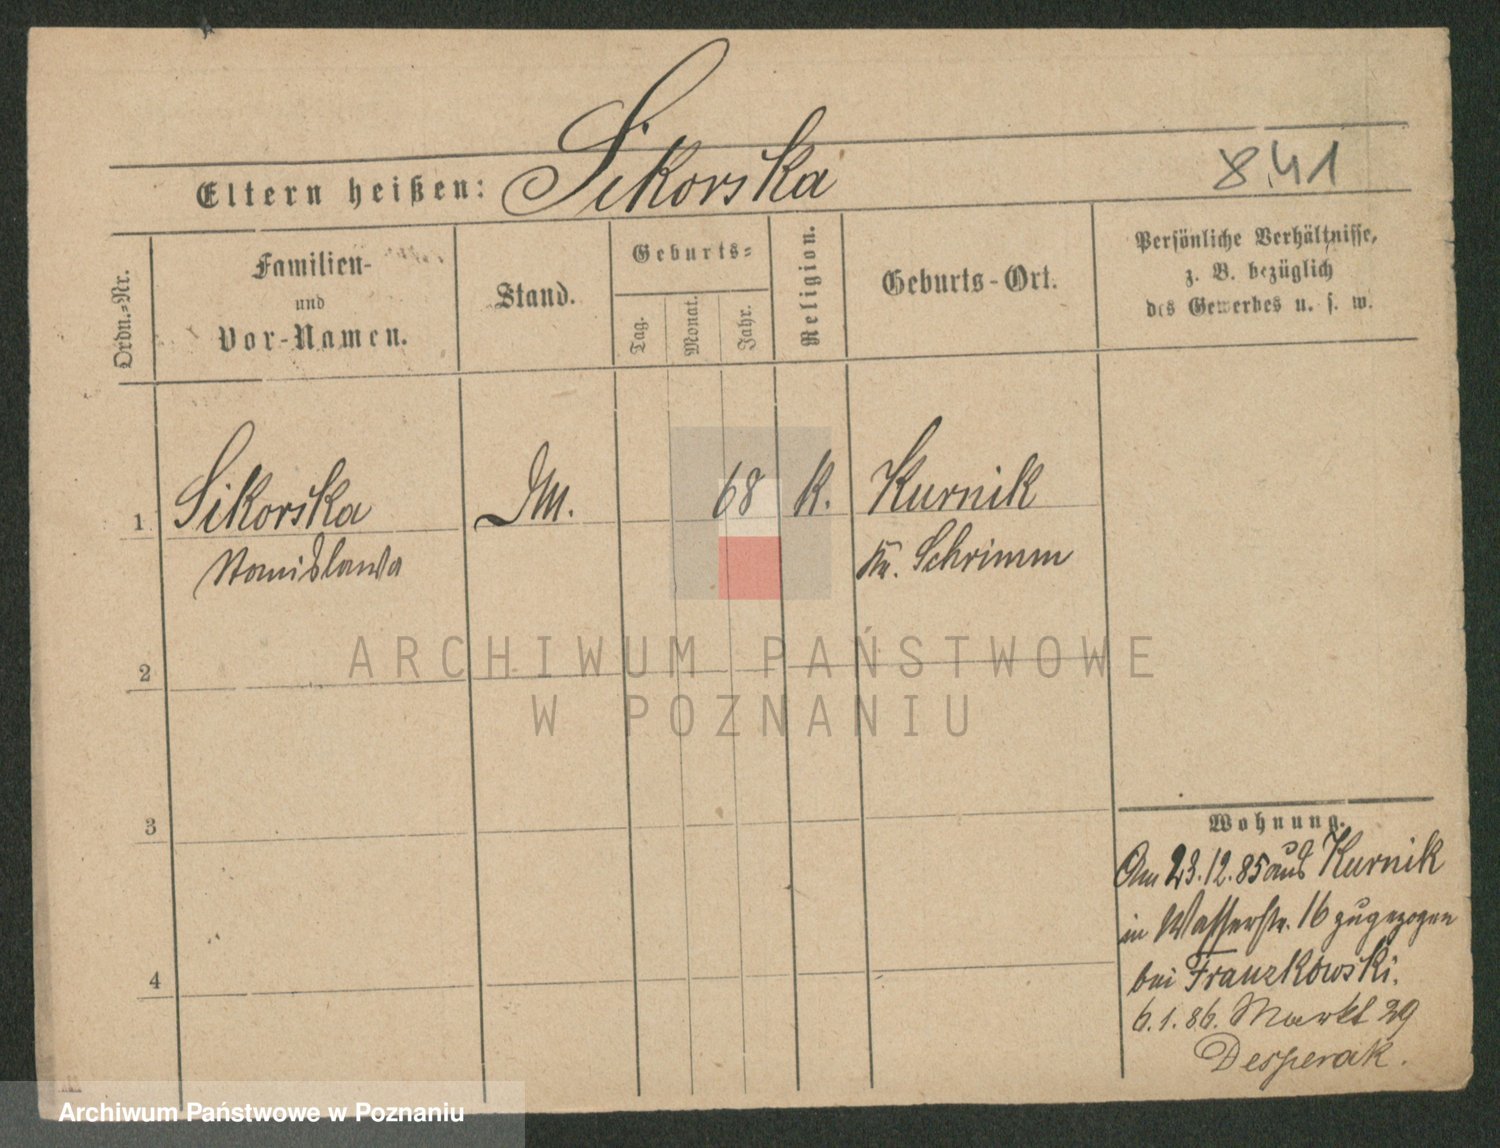 Eltern heißen: Sikorska
8.41
Ordn.-Nr.
Familien-
und
Vor-Namen.
Stand.
Geburts-
Tag.
Monat.
Jahr.
Religion.
Geburts-Ort.
Persönliche Verhältnisse,
z. B. bezüglich
des Gewerbes u. s. w.
1 Sikorska M. 68 K. Kurnik
Stanislawa Kr. Schrimm
2
3
4
Wohnung.
Am 23.12.85 aus Kurnik
in Wasserstr. 16 zugezogen
bei Franzkowski.
6.1.86. Markt 29
Desperak.
ARCHIWUM PAŃSTWOWE
W POZNANIU
Archiwum Państwowe w Poznaniu